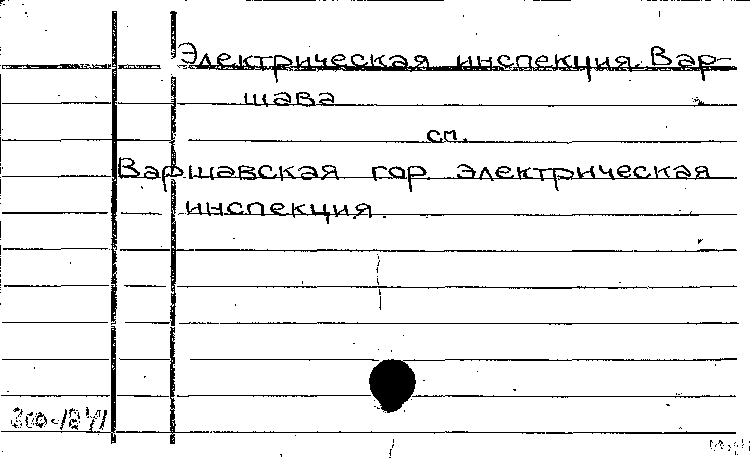 Электрическая инспекция. Вар-
шава
см.
Варшавская гор. электрическая
инспекция.